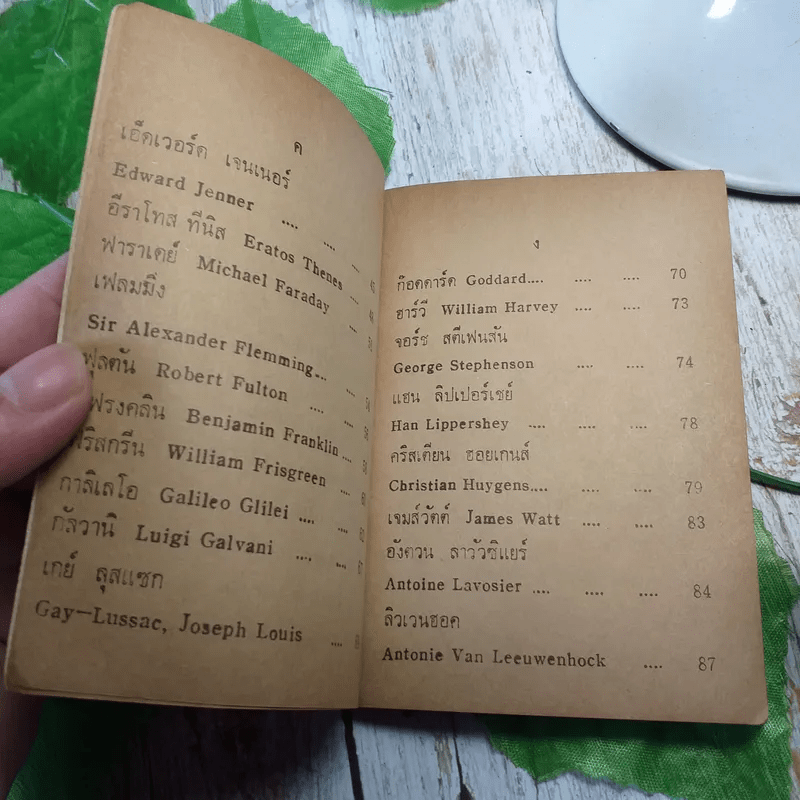 ค
เอ็ดเวอร์ด เจนเนอร์
Edward Jenner .... .... ....
อีราโทส ทีนิส Eratos Thenes .... 45
ฟาราเดย์ Michael Faraday ....
เฟลมมิ่ง
Sir Alexander Flemming... ....
ฟุลตัน Robert Fulton .... ....
ฟรงคลิน Benjamin Franklin ....
ฟริสกรีน William Frisgreen ....
กาลิเลโอ Galileo Glilei .... ....
กัลวานิ Luigi Galvani .... ....
เกย์ ลุสแซก
Gay—Lussac, Joseph Louis ....
ง
ก๊อดดาร์ด Goddard.... .... .... 70
ฮาร์วี William Harvey .... .... 73
จอร์ช สตีเฟนสัน
George Stephenson .... .... 74
แฮน ลิปเปอร์เชย์
Han Lippershey .... .... .... 78
คริสเตียน ฮอยเกนส์
Christian Huygens.... .... .... 79
เจมส์วัตต์ James Watt .... .... 83
อังตวน ลาวัวซิแยร์
Antoine Lavosier .... .... .... 84
ลิวเวนฮอค
Antonie Van Leeuwenhock .... 87